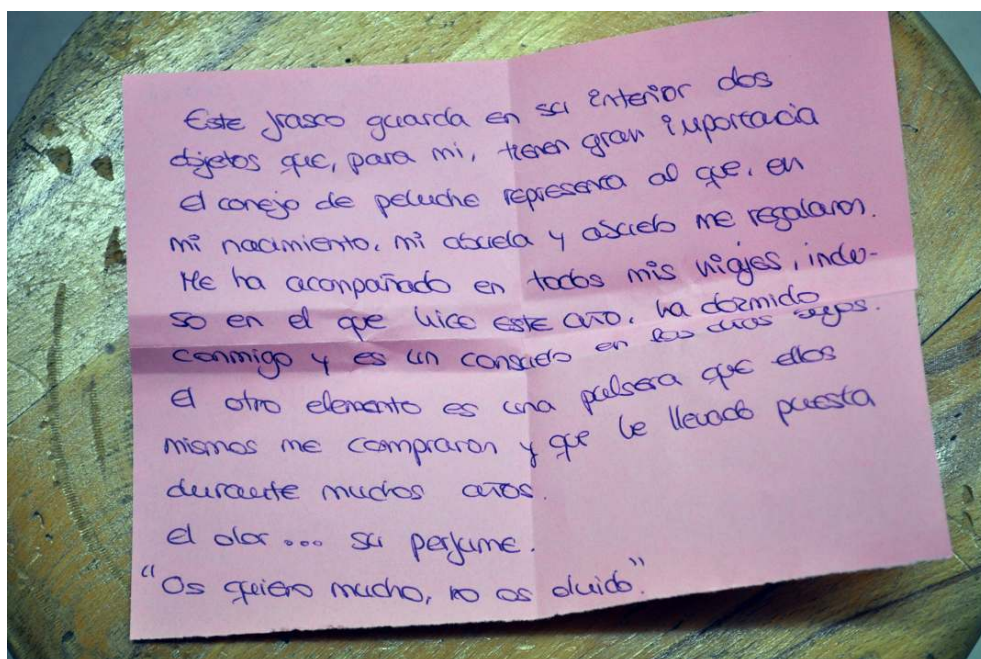 Este frasco guarda en su interior dos
objetos que, para mi, tienen gran importacia
el conejo de peluche representa al que, en
mi nacimiento, mi abuela y abuelo me regalaron.
Me ha acompañado en todos mis viajes, inclu-
so en el que hice este año, ha dormido
conmigo y es un consuelo en los días
el otro elemento es una pulsera que ellos
mismos me compraron y que he llevado puesta
durante muchos años.
el olor... su perfume.
"Os quiero mucho, no os olvido."